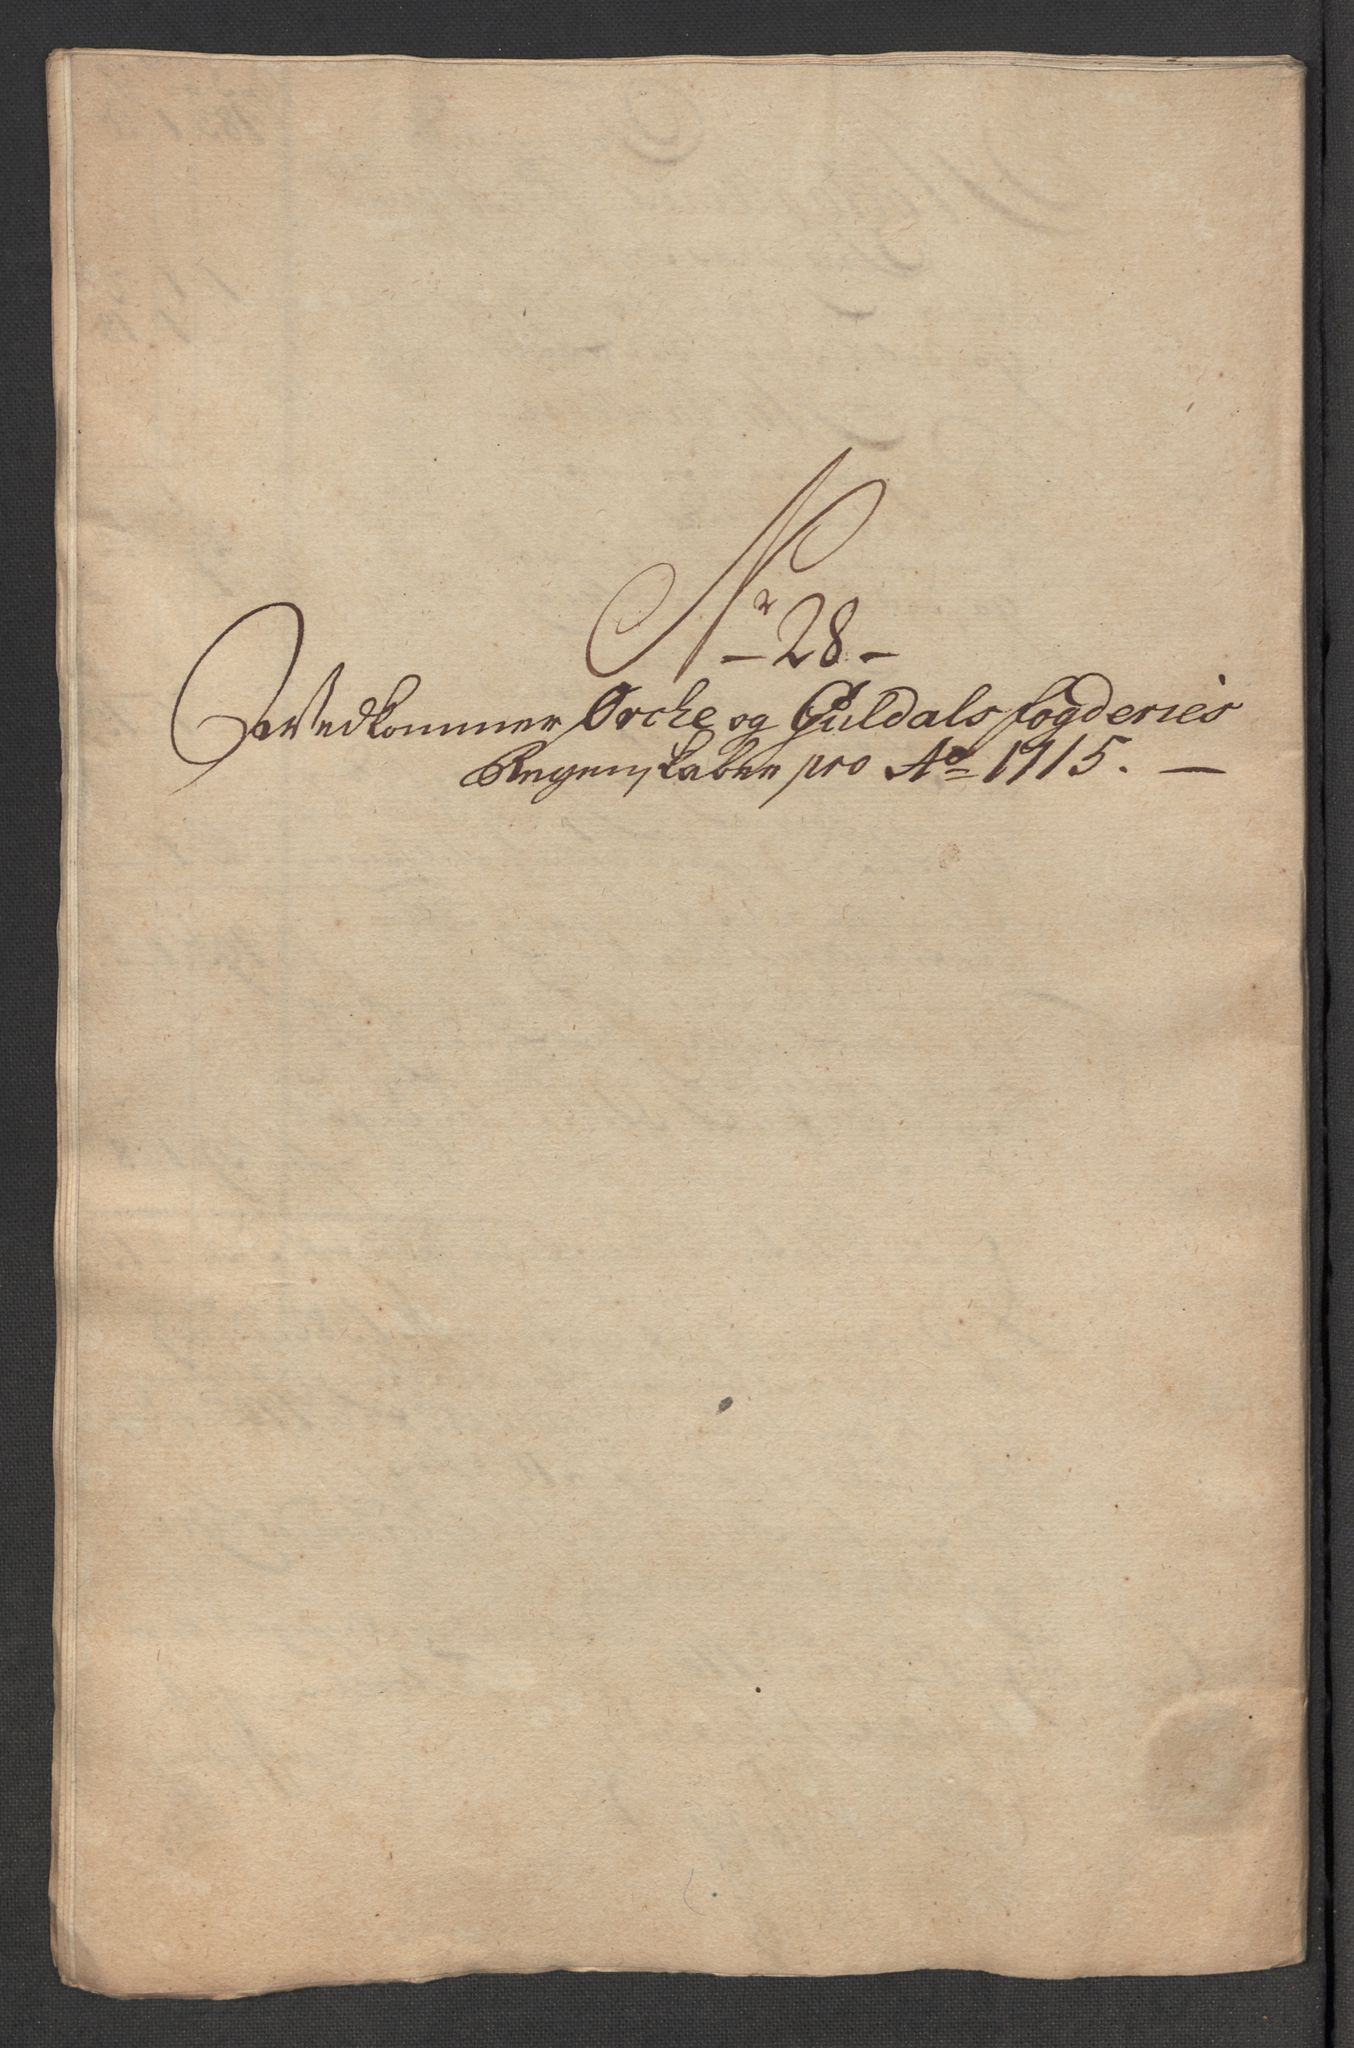 Nr 28
Vedkommer Orche og Guldals fogderies
Regenskaber pro Ao 1715.